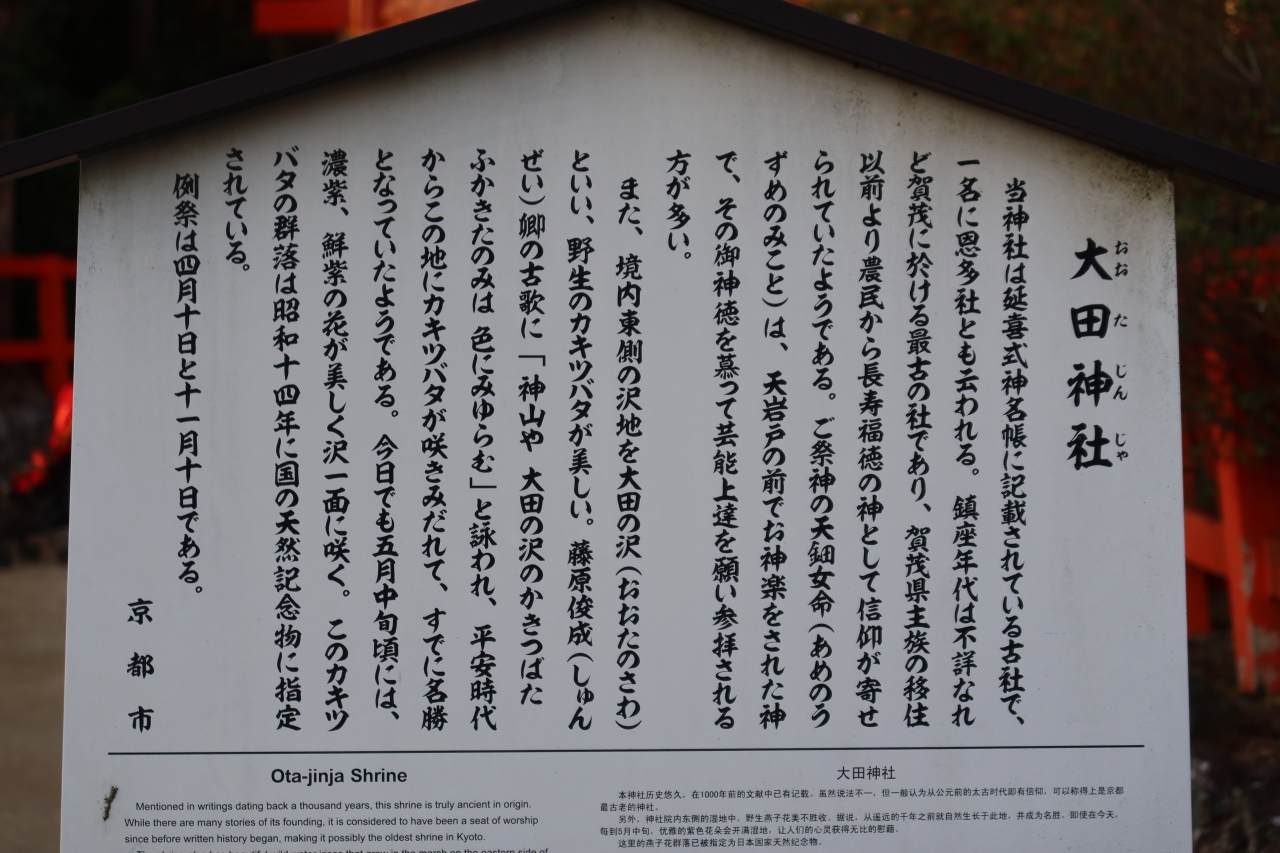 大田神社
おおたじんじゃ
当神社は延喜式神名帳に記載されている古社で、
一名に恩多社とも云われる。鎮座年代は不詳なれ
ど賀茂に於ける最古の社であり、賀茂県主族の移住
以前より農民から長寿福徳の神として信仰が寄せ
られていたようである。ご祭神の天鈿女命(あめのう
ずめのみこと)は、天岩戸の前でお神楽をされた神
で、その御神徳を慕って芸能上達を願い参拝される
方が多い。
また、境内東側の沢地を大田の沢(おおたのさわ)
といい、野生のカキツバタが美しい。藤原俊成(しゅん
ぜい)卿の古歌に「神山や 大田の沢のかきつばた
ふかきたのみは 色にみゆらむ」と詠われ、平安時代
からこの地にカキツバタが咲きみだれて、すでに名勝
となっていたようである。今日でも五月中旬頃には、
濃紫、鮮紫の花が美しく沢一面に咲く。このカキツ
バタの群落は昭和十四年に国の天然記念物に指定
されている。
例祭は四月十日と十一月十日である。
京都市
Ota-jinja Shrine
Mentioned in writings dating back a thousand years, this shrine is truly ancient in origin.
While there are many stories of its founding, it is considered to have been a seat of worship
since before written history began, making it possibly the oldest shrine in Kyoto.
大田神社
本神社历史悠久。在1000年前的文献中已有记载。虽然说法不一，但一般认为从公元前的太古时代即有信仰，可以称得上是京都
最古老的神社。
另外，神社院内东侧的湿地中，野生燕子花美不胜收。据说，从遥远的千年之前就自然生长于此地，并成为名胜。即使在今天，
每到5月中旬，优雅的紫色花朵会开满湿地，让人们的心灵获得无比的慰藉。
这里的燕子花群落已被指定为日本国家天然纪念物。